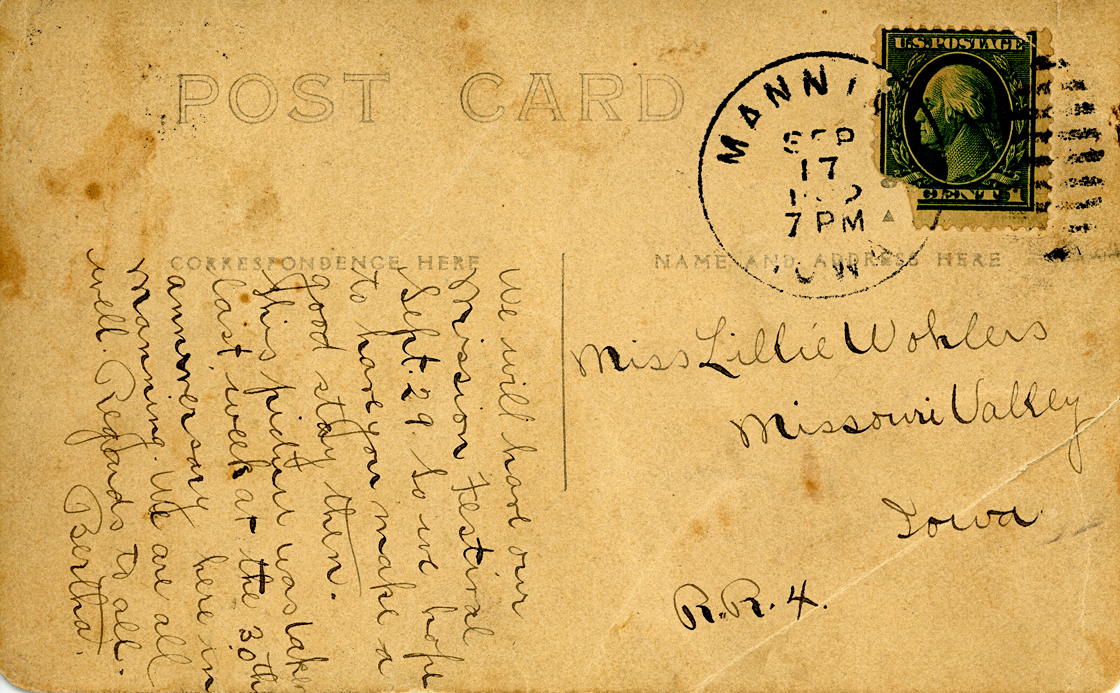 POST CARD
U.S. POSTAGE
CENTS 1
SEP
17
7 PM
CORRESPONDENCE HERE
NAME AND ADDRESS HERE
We will have our
Mission Festival
Sept. 29. So we hope
to have you make a
good stay then.
This picture was taken
last week at the 30th
anniversary here in
Manning. We are all
well. Regards to all.
Bertha.
Miss Lillie Wohlers
Missouri Valley
Iowa
R.R. 4.